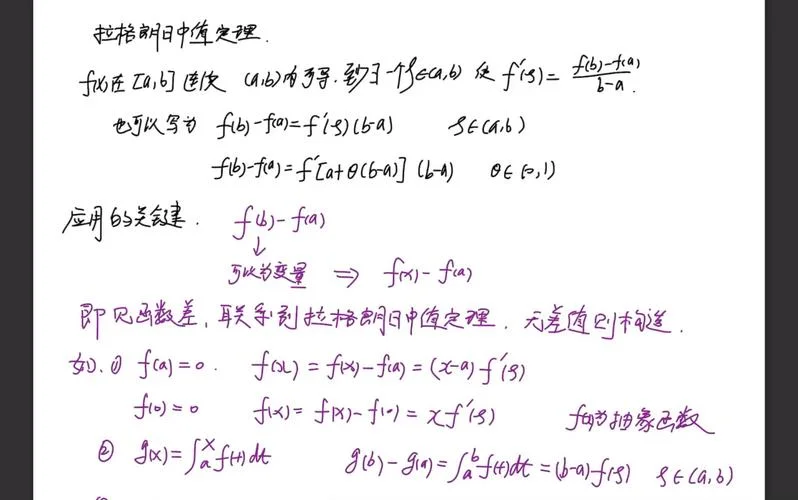 拉格朗日中值定理.
f(x)在[a,b]连续 (a,b)内可导. 至少∃一个ξ∈(a,b) 使 f'(ξ)=\frac{f(b)-f(a)}{b-a}.
也可以写为 f(b)-f(a)=f'(ξ)(b-a) ξ∈(a,b)
f(b)-f(a)=f'[a+θ(b-a)](b-a) θ∈(0,1)
应用的关键. f(b)-f(a)
↓
可以为变量 ⇒ f(x)-f(a)
即见函数差, 联系到拉格朗日中值定理. 无差值则构造.
如). ① f(a)=0. f(x)=f(x)-f(a)=(x-a)f'(ξ)
f(0)=0 f(x)=f(x)-f(0)=xf'(ξ) f(x)为抽象函数
② g(x)=∫_a^x f(t)dt g(b)-g(a)=∫_a^b f(t)dt=(b-a)f(ξ) ξ∈(a,b)